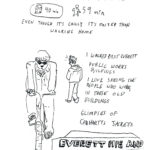 40 min
59 min
EVEN THOUGH IT'S LONGER IT'S BETTER THAN
WALKING HOME
I WALKED PAST EVERETT
PUBLIC WORKS
BUILDINGS
I LOVE SEEING THE
PEOPLE WHO WORK
IN THESE OLD
BUILDINGS
GLIMPSES OF
CARHARTT JACKETS
EVERETT AVE AND